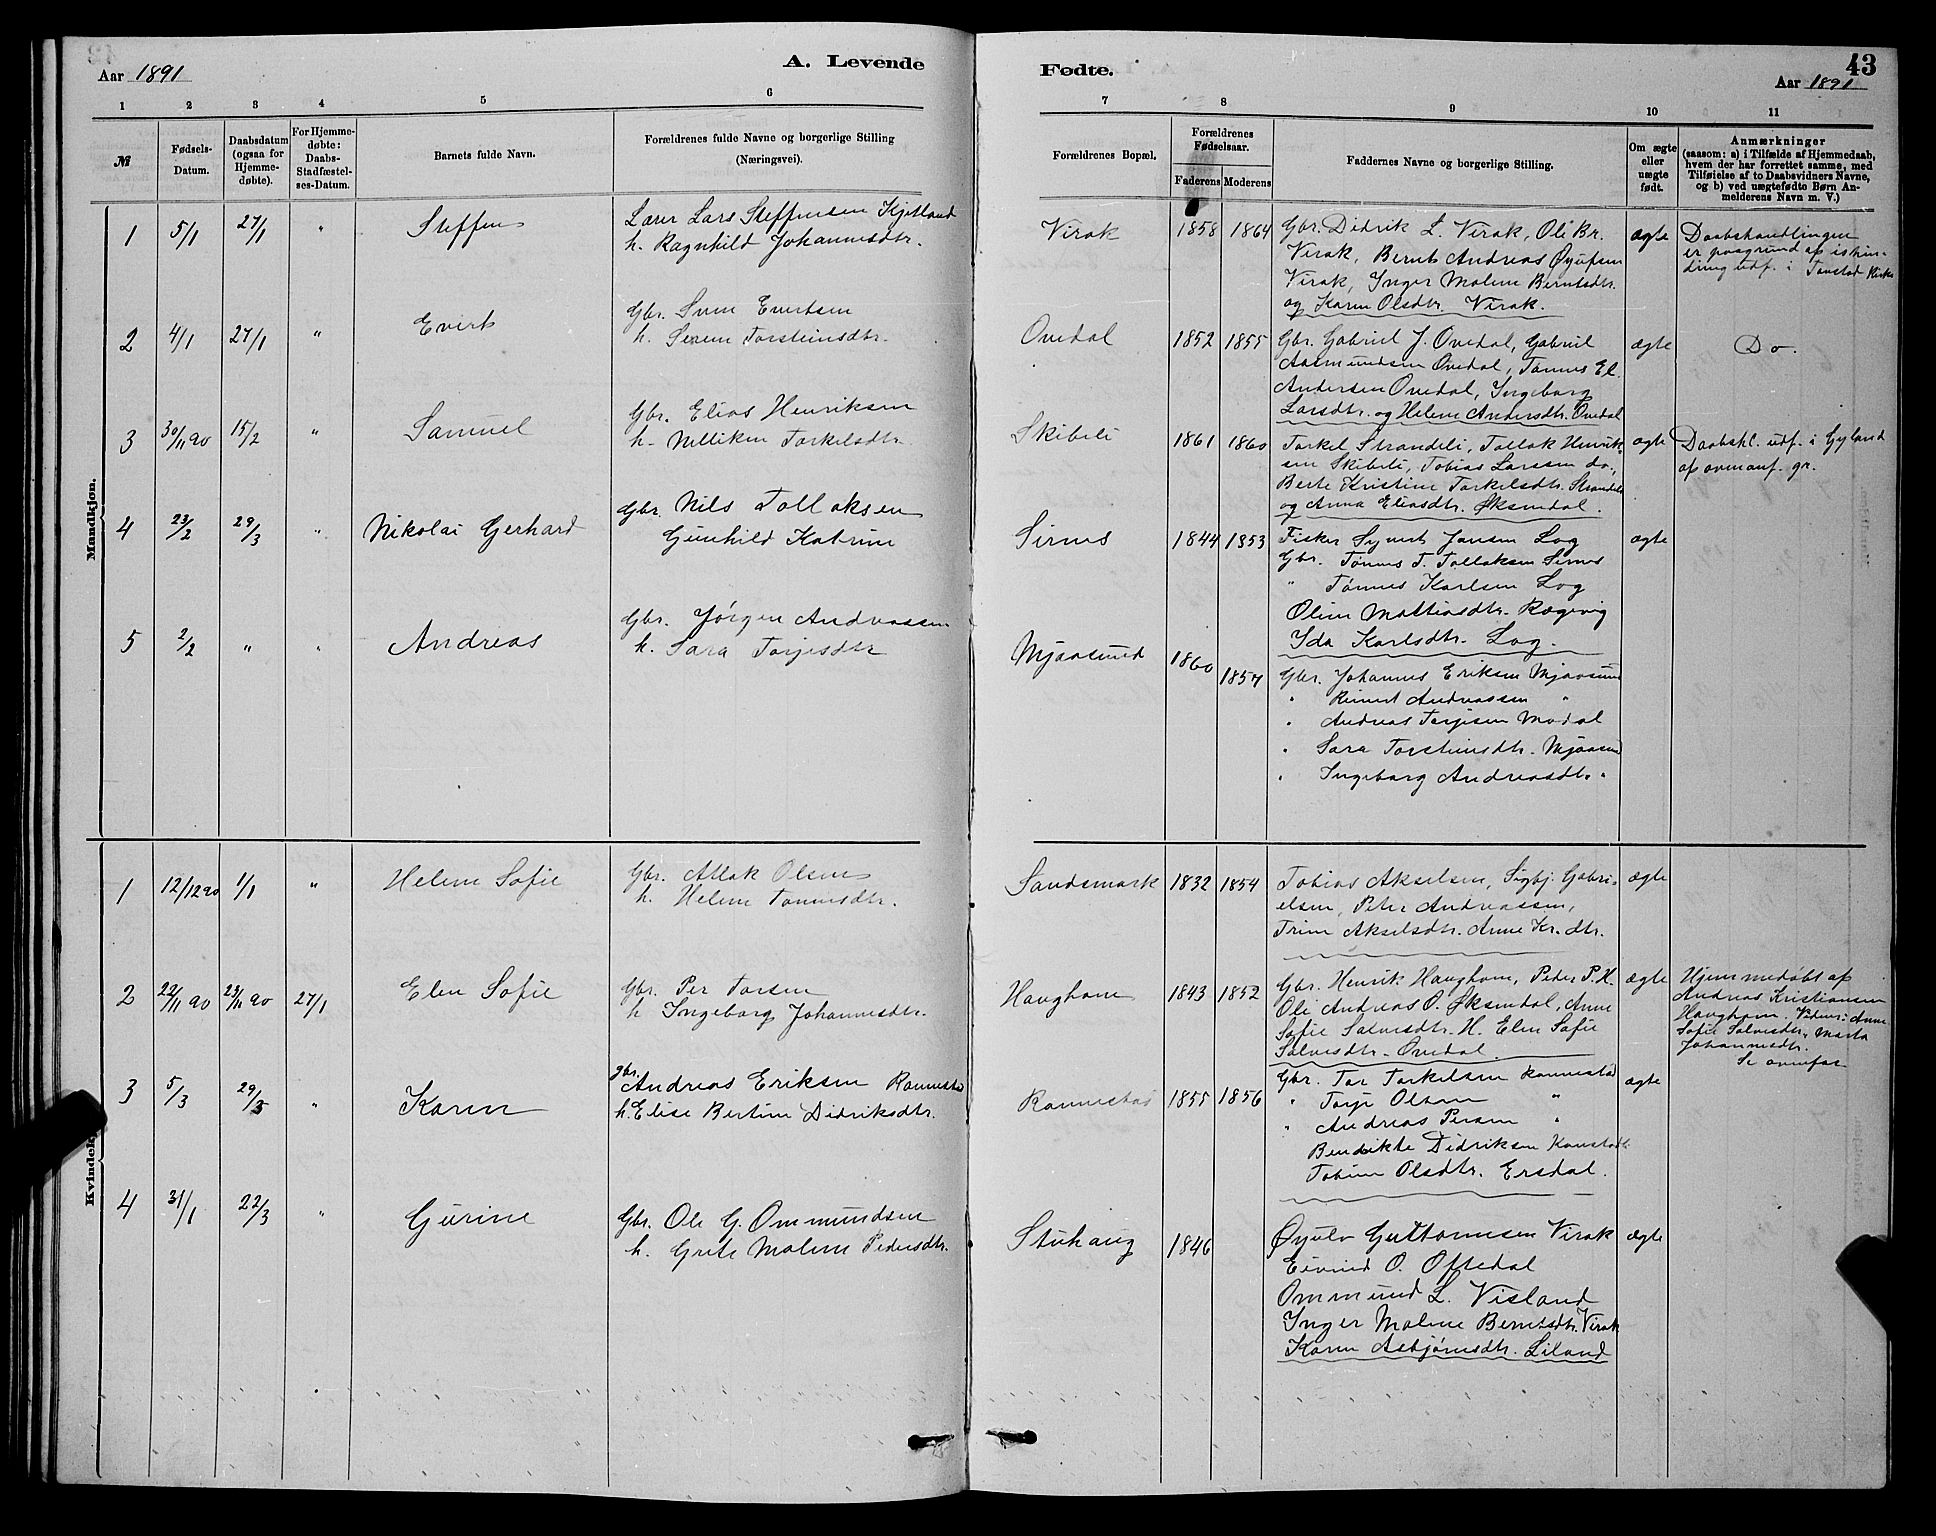 Aar 1891
A. Levende
Fødte.
43
Aar 1891
1 2 3 4 5 6 7 8 9 10 11
№
Fødsels-
Datum.
Daabsdatum
(ogsaa for
Hjemme-
døbte).
For Hjemme-
døbte:
Daabs-
Stadfæstel-
ses-Datum.
Barnets fulde Navn.
Forældrenes fulde Navne og borgerlige Stilling
(Næringsvei).
Forældrenes Bopæl.
Forældrenes
Fødselsaar.
Faderens Moderens
Faddernes Navne og borgerlige Stilling.
Om ægte
eller
uægte
født.
Anmærkninger
(saasom: a) i Tilfælde af Hjemmedaab,
hvem der har forrettet samme, med
Tilføielse af to Daabsvidners Navne,
og b) ved uægtefødte Børn An-
melderens Navn m. V.)
Mandkjøn.
1 5/1 27/1 " Steffen
Lærer Lars Steffensen Kjetland
h. Ragnhild Johannesdtr.
Virak 1858 1864
Gbr. Didrik L. Virak, Ole Br.
Virak, Bernt Andreas Øyufsen
Virak, Inger Malene Berntsdtr.
og Karen Olsdtr. Virak.
ægte
Daabshandlingen
er paagrund af ishin-
dring udf. i Tonstad Kirke
2 4/1 27/1 " Evert
Gbr. Sven Evertsen
h. Serene Torsteinsdtr.
Ovedal 1852 1855
Gbr. Gabriel J. Ovedal, Gabriel
Aasmundsen Ovedal, Tønnes El.
Andersen Ovedal, Ingeborg
Larsdtr. og Helene Andersdtr. Ovedal
ægte
Do.
3 30/11 90 15/2 " Samuel
Gbr. Elias Henriksen
h. Nelliken Torkelsdtr.
Skibeli 1861 1860
Torkel Strandeli, Tollak Henrik-
sen Skibeli, Tobias Larssen do.,
Berte Kristine Torkelsdtr. Strandeli
og Anna Eliasdtr. Øksendal.
ægte
Daabshl. udf. i Gyland
af ovenanf. gr.
4 23/2 29/3 " Nikolai Gerhard
Gbr. Nils Tollaksen
Gunhild Katrine
Sirnes 1844 1853
Fisker Syvert Jansen Log
Gbr. Tønnes T. Tollaksen Sirnes
" Tønnes Karlsen Log
Oline Mattiasdtr. Rægevig
Ida Karlsdtr. Log.
ægte
5 2/2 " " Andreas
Gbr. Jørgen Andreassen
h. Sara Torjesdtr
Mjaasund 1860 1857
Gbr. Johannes Eriksen Mjaasund
" Reinert Andreassen "
" Andreas Torjesen Modal
" Sara Torsteinsdtr. Mjaasund
" Ingeborg Andreasdtr. "
Kvindek
1 12/12 90 1/1 " Helene Sofie
Gbr. Atlak Olsen
h. Helene Tønnesdtr.
Sandsmark 1832 1854
Tobias Akselsen, Sigbj. Gabri-
elsen, Peter Andreassen,
Trine Akselsdtr. Anne Kr. dtr.
ægte
2 22/11 90 23/11 90 27/1 Elen Sofie
Gbr. Per Torsen
h Ingeborg Johannesdtr.
Haughom 1843 1852
Gbr. Henrik Haughom, Peder P. H.
Ole Andreas O. Øksendal, Anne
Sofie Salvesdtr. H. Elen Sofie
Salvesdtr. Ovedal.
ægte
Hjemmedøbt af
Andreas Kristiansen
Haughom. Vidner: Anne
Sofie Salvesdtr, Marta
Johannesdtr.
Se ovenfor
3 5/3 29/3 " Karen
gbr. Andreas Eriksen Rannestad
h. Elise Bertine Didriksdtr.
Rannestad 1855 1856
Gbr. Tor Torkelsen Rannestad
" Torje Olsen "
" Andreas Persen "
Bendikte Didriksen
Tobine Olsdtr. Ersdal.
ægte
4 31/1 22/3 " Gurine
Gbr. Ole G. Ommundsen
h. Grete Malene Pedersdtr.
Stuhaug 1846
Øyulv Guttormsen Virak
Eivind O. Oftedal
Ommund L. Visland
Inger Malene Berntsdtr. Virak
Karen Asbjørnsdtr. Liland
ægte